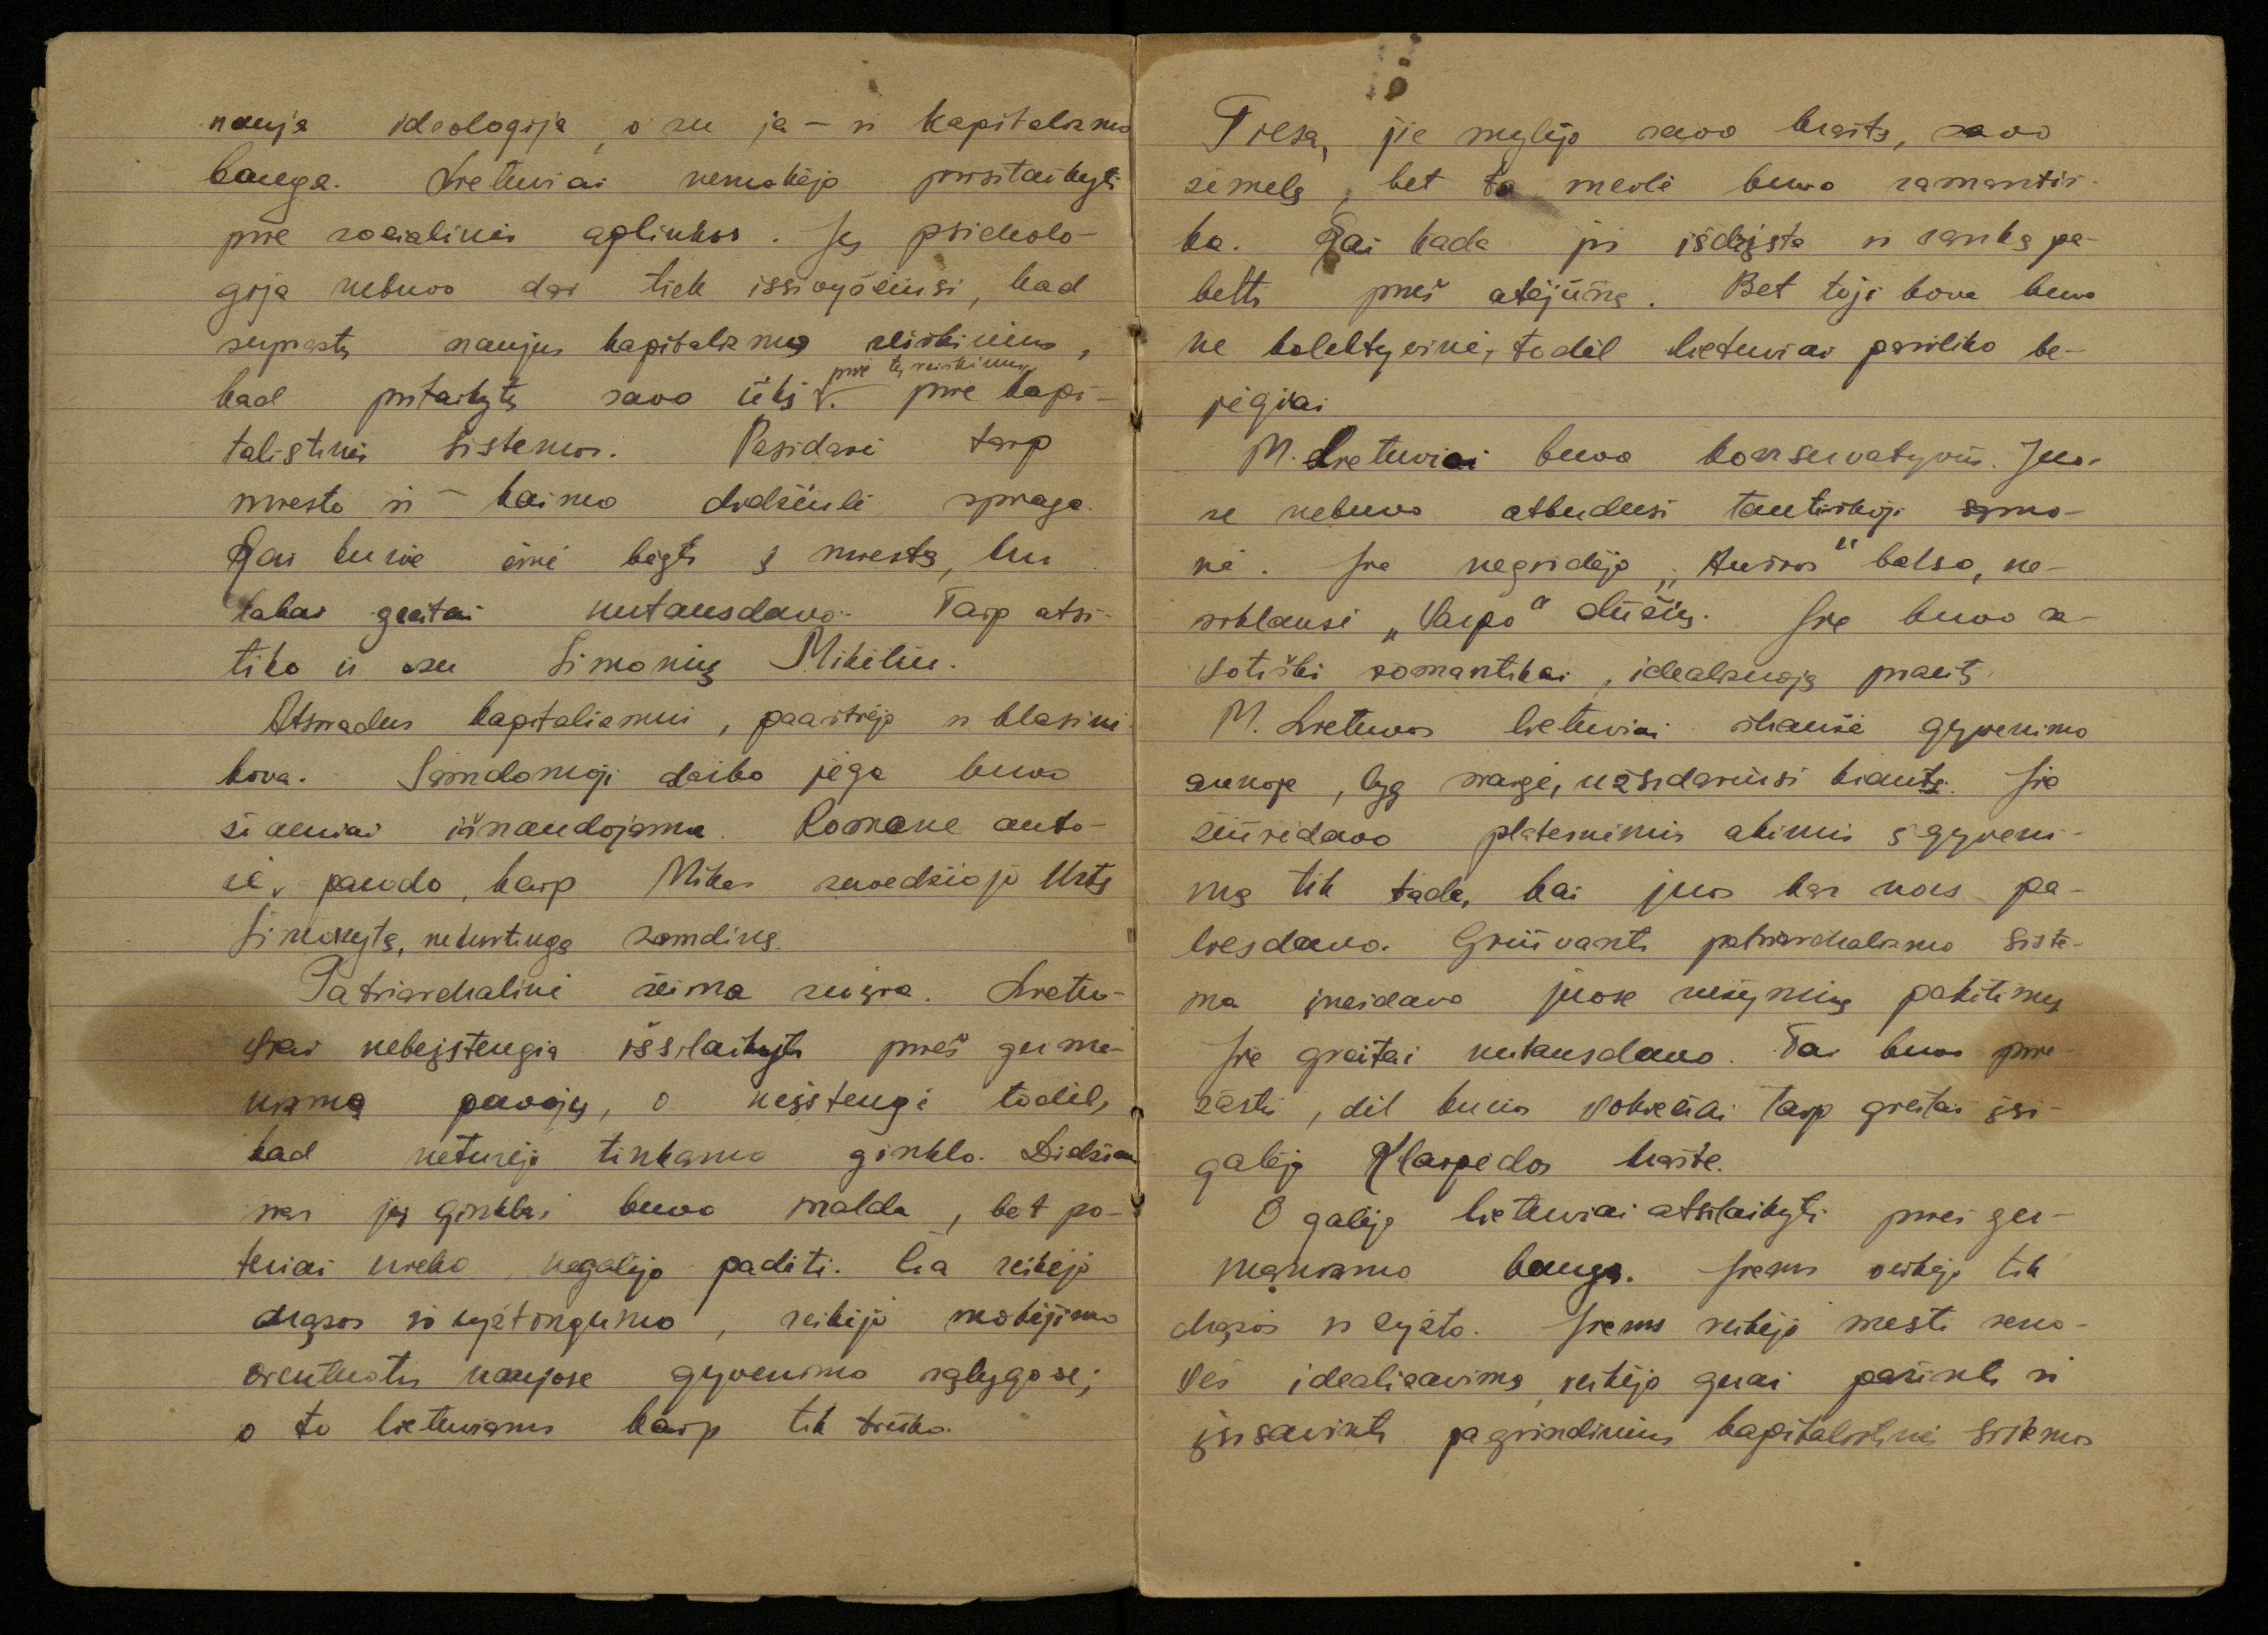 nauja ideologija, o su ja – ir kapitalizmo
banga. Lietuviai nemokėjo prisitaikyti
prie socialinės aplinkos. Jų psicholo-
gija nebuvo dar tiek išsivysčiusi, kad
suprastų naujus kapitalizmo reiškinius,
prie tų reiškinių
kad pritaikytų savo ūkį v. prie kapi-
talistinės sistemos. Pasidarė tarp
miesto ir – kaimo didžiulė spraga.
Kai kurie ėmė bėgti į miestą, kur
labai greitai nutausdavo. Taip atsi-
tiko ir su Simonių Mikeliu.
Atsiradus kapitalizmui, paaštrėjo ir klasinė
kova. Samdomoji darbo jėga buvo
žiauriai išnaudojama. Romane auto-
rė v parodo, kaip Mikas suvedžioja Urtę
Simonytę, neturtingą samdinę.
Patriarchalinė šeima suįra. Lietu-
viai nebeįstengia išsilaikyti prieš germa-
nizmo pavojų, o neįstengė todėl,
kad neturėjo tinkamo ginklo. Didžiau-
sias jų ginklas buvo malda, bet po-
teriai nieko negalėjo padėti. Čia reikėjo
drąsos ir ryžtingumo, reikėjo mokėjimo
orientuotis naujose gyvenimo sąlygose;
o to lietuviams kaip tik trūko.
Tiesa, jie mylėjo savo kraštą, savo
žemelę, bet ta meilė buvo romantiš-
ka. Kai kada jie išdrįsta ir ranką pa-
kelti prieš atėjūną. Bet toji kova buvo
ne kolektyvinė, todėl lietuviai pasiliko be-
jėgiai
M. Lietuviai buvo konservatyvūs. Juo-
se nebuvo atbudusi tautiškoji sąmo-
nė. Jie negirdėjo „Aušros" balso, ne-
siklausė „Varpo" dūžių. Jie buvo sa-
votiški romantikai, idealizuoją praeitį.
M. Lietuvos lietuviai skausė gyvenimo
audroje, lyg sraigė, užsidariusi kiaute. Jie
žiūrėdavo platesnėmis akimis į gyveni-
mą tik tada, kai juos kas nors pa-
liesdavo. Griūvanti patriarchalizmo siste-
ma įnešdavo juose neigiamų pakitimų
Jie greitai nutausdavo. Tai buvo prie-
žastis, dėl kurios vokiečiai taip greitai įsi-
galėjo Klaipėdos krašte.
O galėjo lietuviai atsilaikyti prieš ger-
manizmo bangą. Jiems reikėjo tik
drąsos ir ryžto. Jiems reikėjo mesti seno-
vės idealizavimą, reikėjo gerai pažinti ir
įsisavinti pagrindinius kapitalistinės sistemos